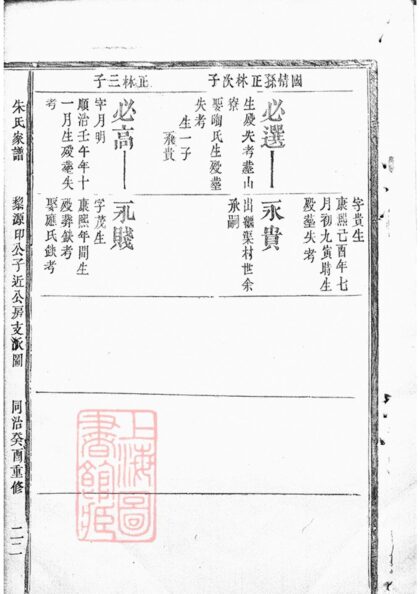 國情孫正林次子
必選
生歿失考塟山
寮
娶陶氏生歿塟
失考
生一子
永貴
字貴生
康熙己酉年七
月初九寅時生
歿塟失考
永貴
出繼葉村世余
承嗣
正林三子
必高
字月明
順治壬午年十
一月生歿塟失
考
永賤
字茂生
康熙年間生
歿葬缺考
娶應氏缺考
朱氏家譜
黎源印公子近公房支派圖
同治癸酉重修
二二
上海圖
書館藏